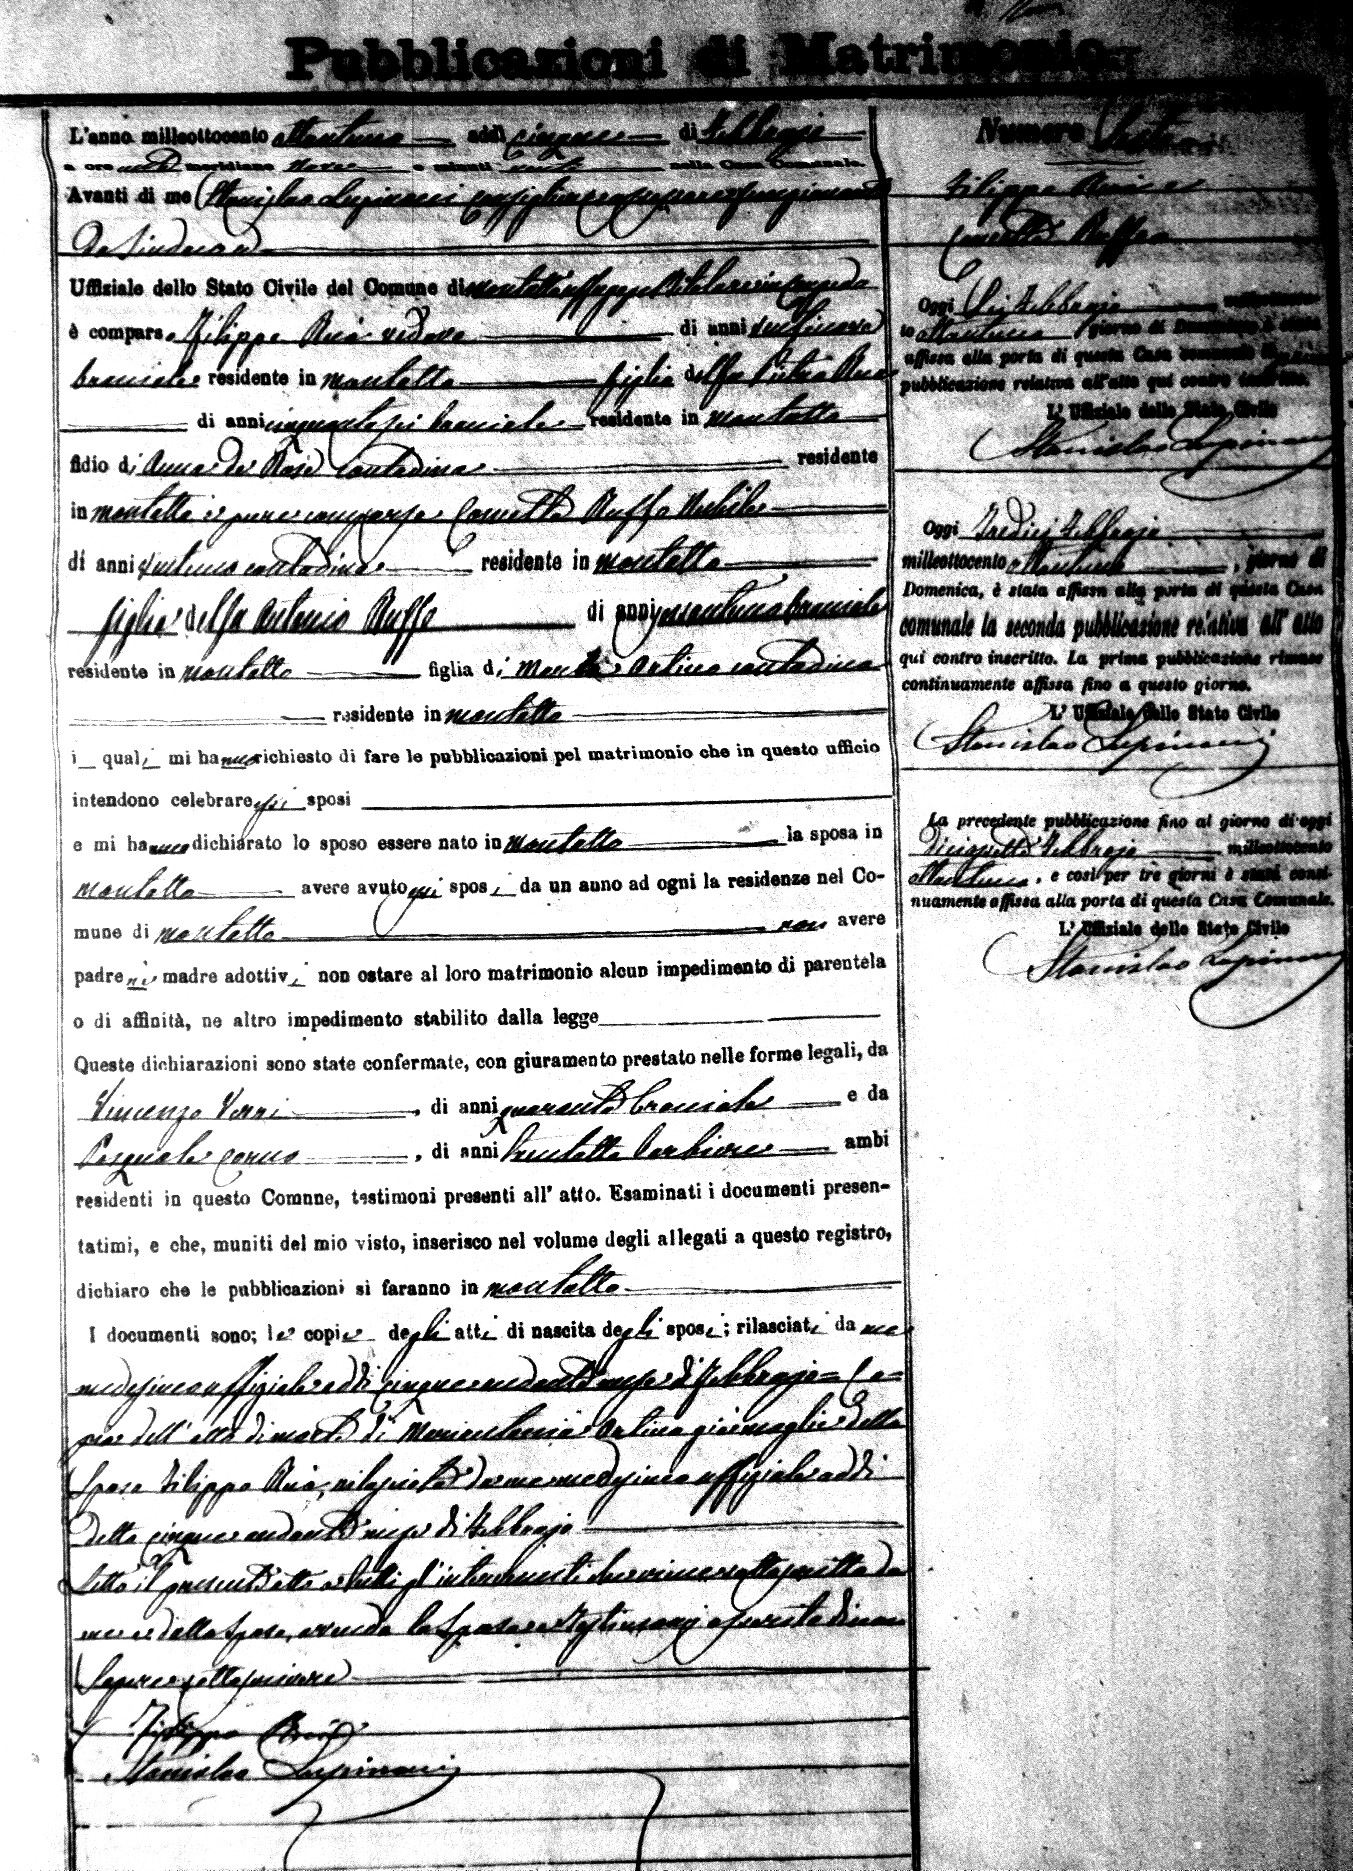 Pubblicazioni di Matrimonio
L'anno milleottocento ottantuno addì cinque di Febbrajo
a ore meridiane nove e minuti venti nella Casa Comunale.
Avanti di me Stanislao Lupinacci Consigliere assessore funzionante
da Sindaco
Uffiziale dello Stato Civile del Comune di Montalto Uffugo
è comparso Filippo Ruà vedovo di anni ventinove
bracciale residente in Montalto figlio del fu Pietro Ruà
di anni cinquantasei bracciale residente in Montalto
fidio di Anna De Rose contadina residente
in Montalto è pure comparsa Concetta Ruffo Nubile
di anni ventuno contadina residente in Montalto
figlia del fu Antonio Ruffo di anni sessantuno bracciale
residente in Montalto figlia di Maria Artino contadina
residente in Montalto
i quali mi hanno richiesto di fare le pubblicazioni pel matrimonio che in questo ufficio
intendono celebrare essi sposi
e mi hanno dichiarato lo sposo essere nato in Montalto la sposa in
Montalto avere avuto essi sposi da un anno ad ogni la residenze nel Co-
mune di Montalto non avere
padre nè madre adottivi non ostare al loro matrimonio alcun impedimento di parentela
o di affinità, ne altro impedimento stabilito dalla legge
Queste dichiarazioni sono state confermate, con giuramento prestato nelle forme legali, da
Vincenzo Verri, di anni quaranta bracciale e da
Pasquale Corno, di anni trentotto barbiere ambi
residenti in questo Comnne, testimoni presenti all' atto. Esaminati i documenti presen-
tatimi, e che, muniti del mio visto, inserisco nel volume degli allegati a questo registro,
dichiaro che le pubblicazioni si faranno in Montalto
I documenti sono; le copie degli atti di nascita degli sposi; rilasciati da me
medesimo uffiziale addì cinque andante mese di Febbrajo = Co=
pia dell' atto di morte di Mariantonia Artino già moglie dello
Sposo Filippo Ruà, rilasciata da me medesimo uffiziale addì
detto cinque andante mese di Febbrajo
Letto il presente atto a tutti gl'intervenuti viene sottoscritto da
me e dallo Sposo, avendo la Sposa e testimoni asserito di non
sapere sottoscrivere
Filippo Ruà
Stanislao Lupinacci
Numero
Filippo Ruà e
Concetta Ruffo
Oggi Sei Febbrajo milleottocen-
to ottantuno giorno di Domenica è stata
affissa alla porta di questa Casa comunale la prima
pubblicazione relativa all'atto qui contro inscritto.
L' Uffiziale dello Stato Civile
Stanislao Lupinacci
Oggi Tredici Febbrajo
milleottocento ottantuno, giorno di
Domenica, è stata affissa alla porta di questa Casa
comunale la seconda pubblicazione relativa all' atto
qui contro inscritto. La prima pubblicazione rimase
continuamente affissa fino a questo giorno.
L' Uffiziale dello Stato Civile
Stanislao Lupinacci
La precedente pubblicazione fino al giorno di oggi
diciassette Febbrajo milleottocento
ottantuno, e così per tre giorni è stata conti-
nuamente affissa alla porta di questa Casa Comunale.
L' Uffiziale dello Stato Civile
Stanislao Lupinacci